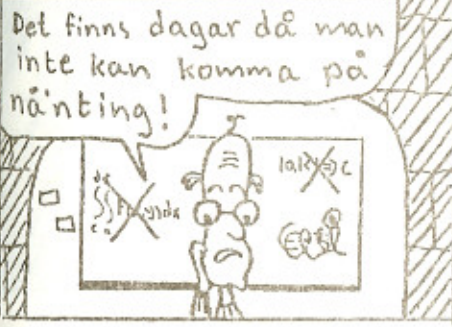 Det finns dagar då man
inte kan komma på
nå'nting!